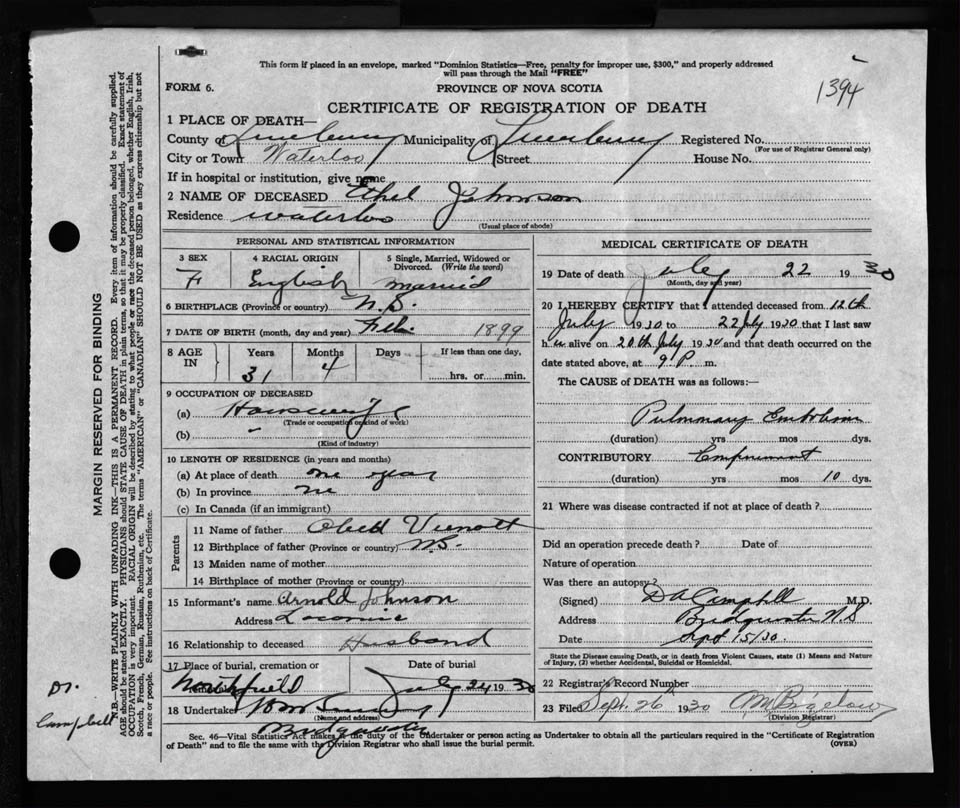 This form if placed in an envelope, marked "Dominion Statistics—Free, penalty for improper use, $300," and properly addressed
will pass through the Mail "FREE"
1394
FORM 6.
PROVINCE OF NOVA SCOTIA
CERTIFICATE OF REGISTRATION OF DEATH
1 PLACE OF DEATH—
County of Lunenburg Municipality of Lunenburg Registered No.
(For use of Registrar General only)
City or Town Waterloo Street House No.
If in hospital or institution, give name
2 NAME OF DECEASED Ethel Johnson
Residence Waterloo
(Usual place of abode)
PERSONAL AND STATISTICAL INFORMATION
3 SEX 4 RACIAL ORIGIN 5 Single, Married, Widowed or
Divorced. (Write the word)
F English married
6 BIRTHPLACE (Province or country) N.S.
7 DATE OF BIRTH (month, day and year) Feb. 1899
8 AGE IN Years Months Days If less than one day,
31 4 hrs. or min.
9 OCCUPATION OF DECEASED
(a) Housewife
(Trade or occupation or kind of work)
(b)
(Kind of industry)
10 LENGTH OF RESIDENCE (in years and months)
(a) At place of death one year
(b) In province
(c) In Canada (if an immigrant)
Parents
11 Name of father Obed
12 Birthplace of father (Province or country) N.S.
13 Maiden name of mother
14 Birthplace of mother (Province or country)
15 Informant's name Arnold Johnson
Address
16 Relationship to deceased Husband
17 Place of burial, cremation or Date of burial
Northfield July 24 1930
18 Undertaker
(Name and address)
Bridgewater
MEDICAL CERTIFICATE OF DEATH
19 Date of death July 22 1930
(Month, day and year)
20 I HEREBY CERTIFY that I attended deceased from 12th
July 1930 to 22 July 1930 that I last saw
h er alive on 20th July 1930 and that death occurred on the
date stated above, at 9 P. m.
The CAUSE of DEATH was as follows:
Pulmonary Embolism
(duration) yrs mos dys.
CONTRIBUTORY
(duration) yrs mos 10 dys.
21 Where was disease contracted if not at place of death?
Did an operation precede death? Date of
Nature of operation
Was there an autopsy?
(Signed) DA Campbell M.D.
Address Bridgewater N.S
Date Sept 15/30.
State the Disease causing Death, or in death from Violent Causes, state (1) Means and Nature
of Injury, (2) whether Accidental, Suicidal or Homicidal.
22 Registrar's Record Number
23 Filed Sept. 26 1930
(Division Registrar)
Sec. 46—Vital Statistics Act makes it the duty of the Undertaker or person acting as Undertaker to obtain all the particulars required in the "Certificate of Registration
of Death" and to file the same with the Division Registrar who shall issue the burial permit. (OVER)
MARGIN RESERVED FOR BINDING
N.B.—WRITE PLAINLY WITH UNFADING INK—THIS IS A PERMANENT RECORD. Every item of information should be carefully supplied.
AGE should be stated EXACTLY. PHYSICIANS should STATE CAUSE OF DEATH in plain terms, so that it may be properly classified. Exact statement of
OCCUPATION is very important. RACIAL ORIGIN will be described by stating to what people or race the deceased person belonged, whether English, Irish,
Scotch, French, German, Russian, Ruthenian, etc. The terms "AMERICAN" or "CANADIAN" SHOULD NOT BE USED as they express citizenship but not
a race or people. See instructions on back of Certificate.
Dr.
Campbell